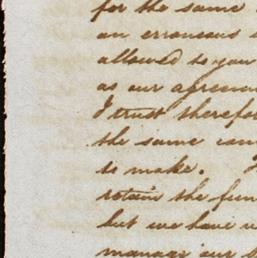 for the same
an erroneous
allowed to you
as our agreem
I trust therefor
the same con
to make.
retain the fun
but we have
manage our